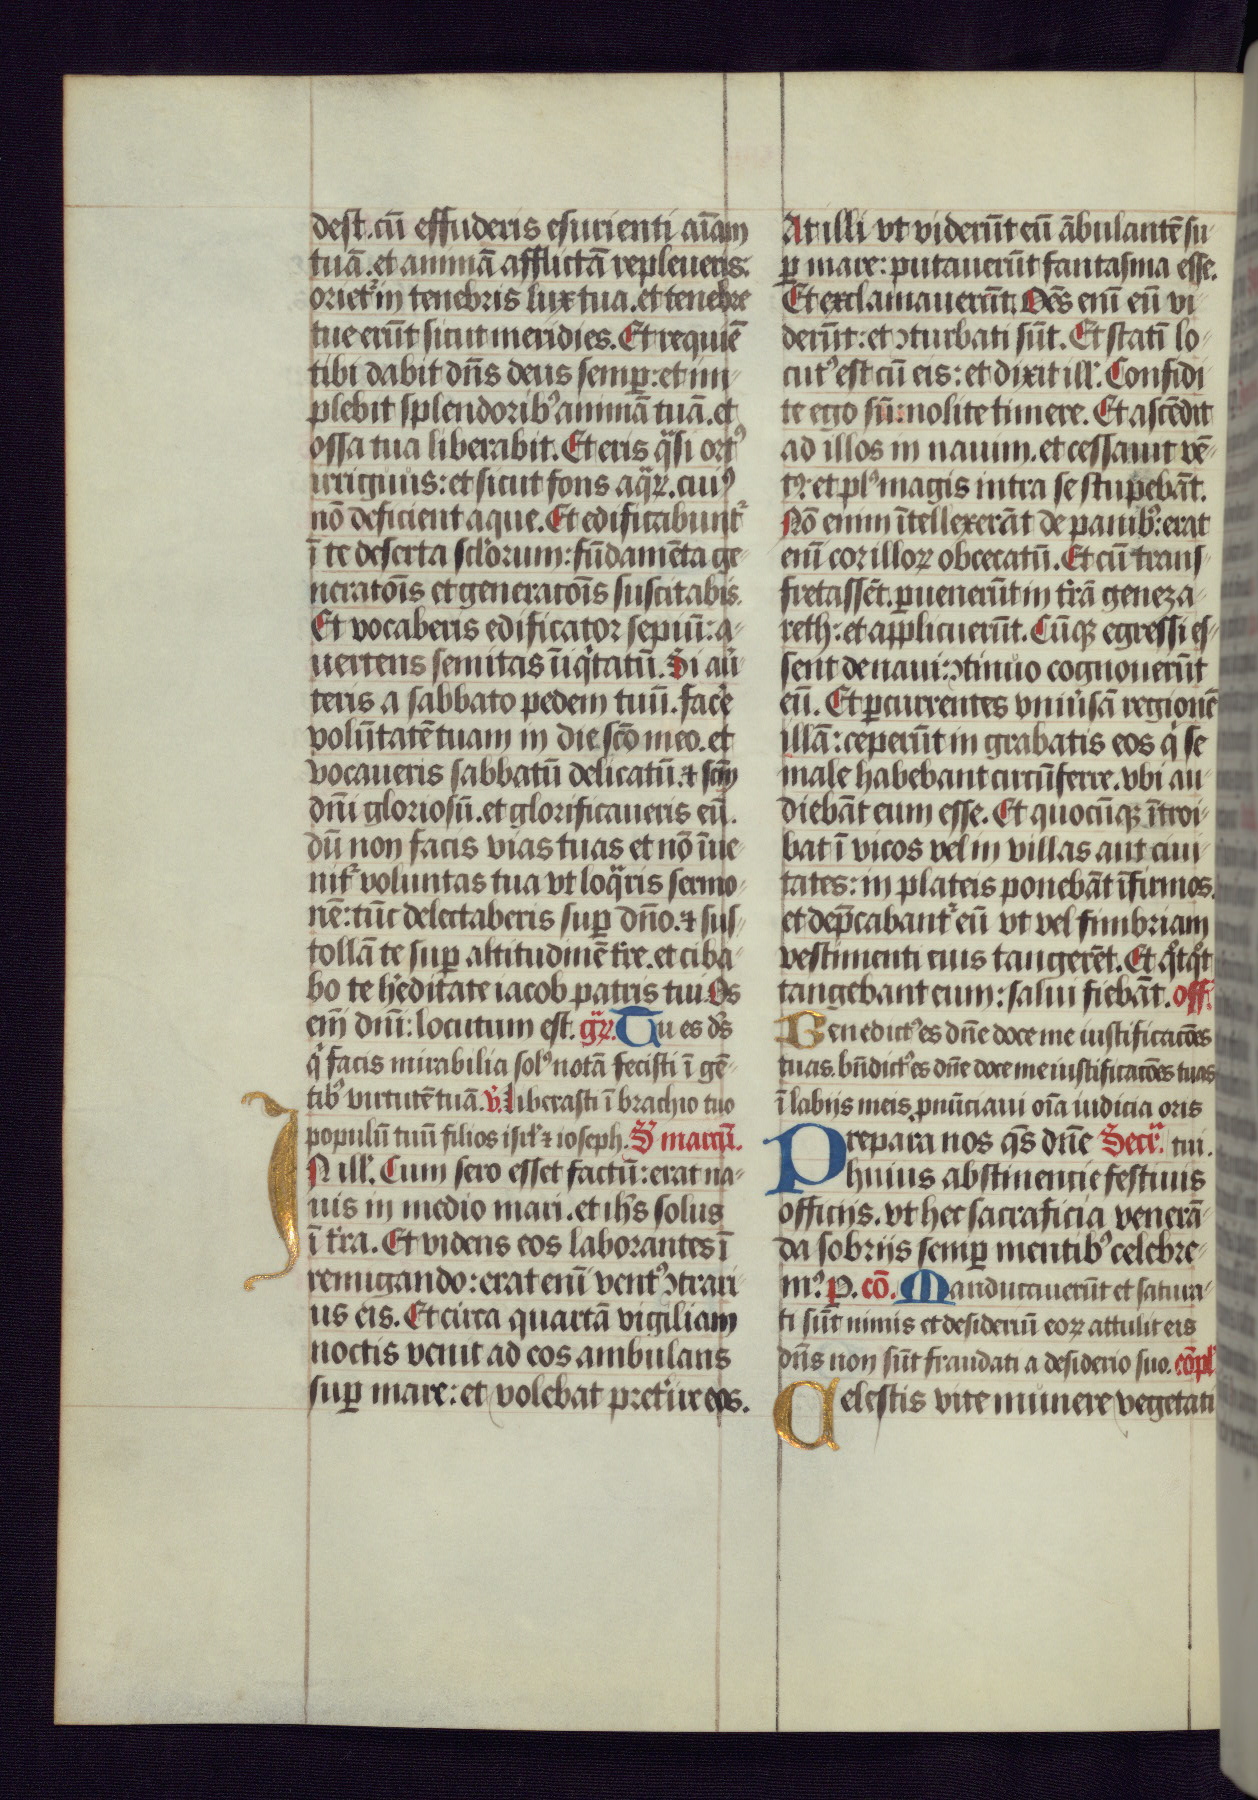 dest. cū effuderis esurienti aīam
tuā. et animā afflictā repleueris:
oriet᷑ in tenebris lux tua. et tenebre
tue erūt sicut meridies. Et requiē
tibi dabit dn̄s deus semꝑ: et im-
plebit splendoribꝰ animā tuā. et
ossa tua liberabit. Et eris qᷓsi ortꝰ
irriguus: et sicut fons aqᷓꝝ. cuiꝰ
nō deficient aque. Et edificabunt᷑
ī te deserta sclo᷑rum: fūdamēta ge-
neratoīs et generatoīs suscitabis.
Et vocaberis edificator sepiū: a-
uertens semitas īiqͥtatū. Si au᷑-
teris a sabbato pedem tuū. face᷑
volūtatē tuam in die scō meo. et
vocaueris sabbatū delicatū. ⁊ scm̄
dn̄i gloriosū. et glorificaueris eū.
dū non facis vias tuas et nō īue-
nit᷑ voluntas tua vt loqᷓris sermo-
nē: tūc delectaberis suꝑ dn̄o. ⁊ sus-
tollā te suꝑ altitudinē tr̄e. et ciba-
bo te he᷑ditate iacob patris tui. Os
em̄ dn̄i: locutum est. gᷓꝝ. Tu es ds̄
qͥ facis mirabilia solꝰ notā fecisti ī gē-
tibꝰ virtutē tuā. v᷑. Liberasti ī brachio tuo
populū tuū filios isrl᷑ ⁊ ioseph. S marcū.
IN ill᷑. Cum sero esset factū: erat na-
uis in medio mari. et ih̄s solus
ī tr̄ra. Et videns eos laborantes ī
remigando: erat enī ventꝰ ꝯtrari-
us eis. Et circa quartā vigiliam
noctis venit ad eos ambulans
suꝑ mare: et volebat pret᷑ire eos.
At illi vt viderūt eū ābulantē su-
ꝑ mare: putauerūt fantasma esse.
Et exclamauerūt. Oēs enī eū vi-
derūt: et ꝯturbati sūt. Et statī lo-
cutꝰ est cū eis: et dixit ill᷑. Confidi
te ego sū: nolite timere. Et ascēdit
ad illos in nauim. et cessauit vē-
tꝰ: et plꝰ magis intra se stupebāt.
Nō enim ītellexerāt de panibꝰ: erat
enī cor illoꝝ obcecatū. Et cū trans-
fretassēt. ꝑuenerūt in tr̄ā geneza-
reth: et applicuerūt. Cūqꝫ egressi es-
sent de naui: ꝯtinuo cognouerūt
eū. Et ꝑcurrentes vniu᷑sā regionē
illā: ceperūt in grabatis eos qͥ se
male habebant circūferre. vbi au-
diebāt eum esse. Et quocūqꝫ ītroi-
bat ī vicos vel in villas aut ciui-
tates: in plateis ponebāt īfirmos.
et dep̄cabant᷑ eū vt vel fimbriam
vestimenti eius tangerēt. Et qͦtqͦt
tangebant eum: salui fiebāt. off᷑.
Benedictꝰ es dn̄e doce me iustificacōes
tuas. bn̄dictꝰ es dn̄e doce me iustificacōes tuas
ī labijs meis ꝓnūciaui oīa iudicia oris
Prepara nos qs̄ dn̄e Secr᷑. tui.
huius abstinencie festiuis
officijs. vt hec sacraficia venerā-
da sobrijs semꝑ mentibꝰ celebre-
mꝰ. P. cō. Manducauerūt et satura-
ti sūt nimis et desideriū eoꝝ attulit eis
dn̄s non sūt fraudati a desiderio suo. cōpl᷑
Celestis vite munere vegetati